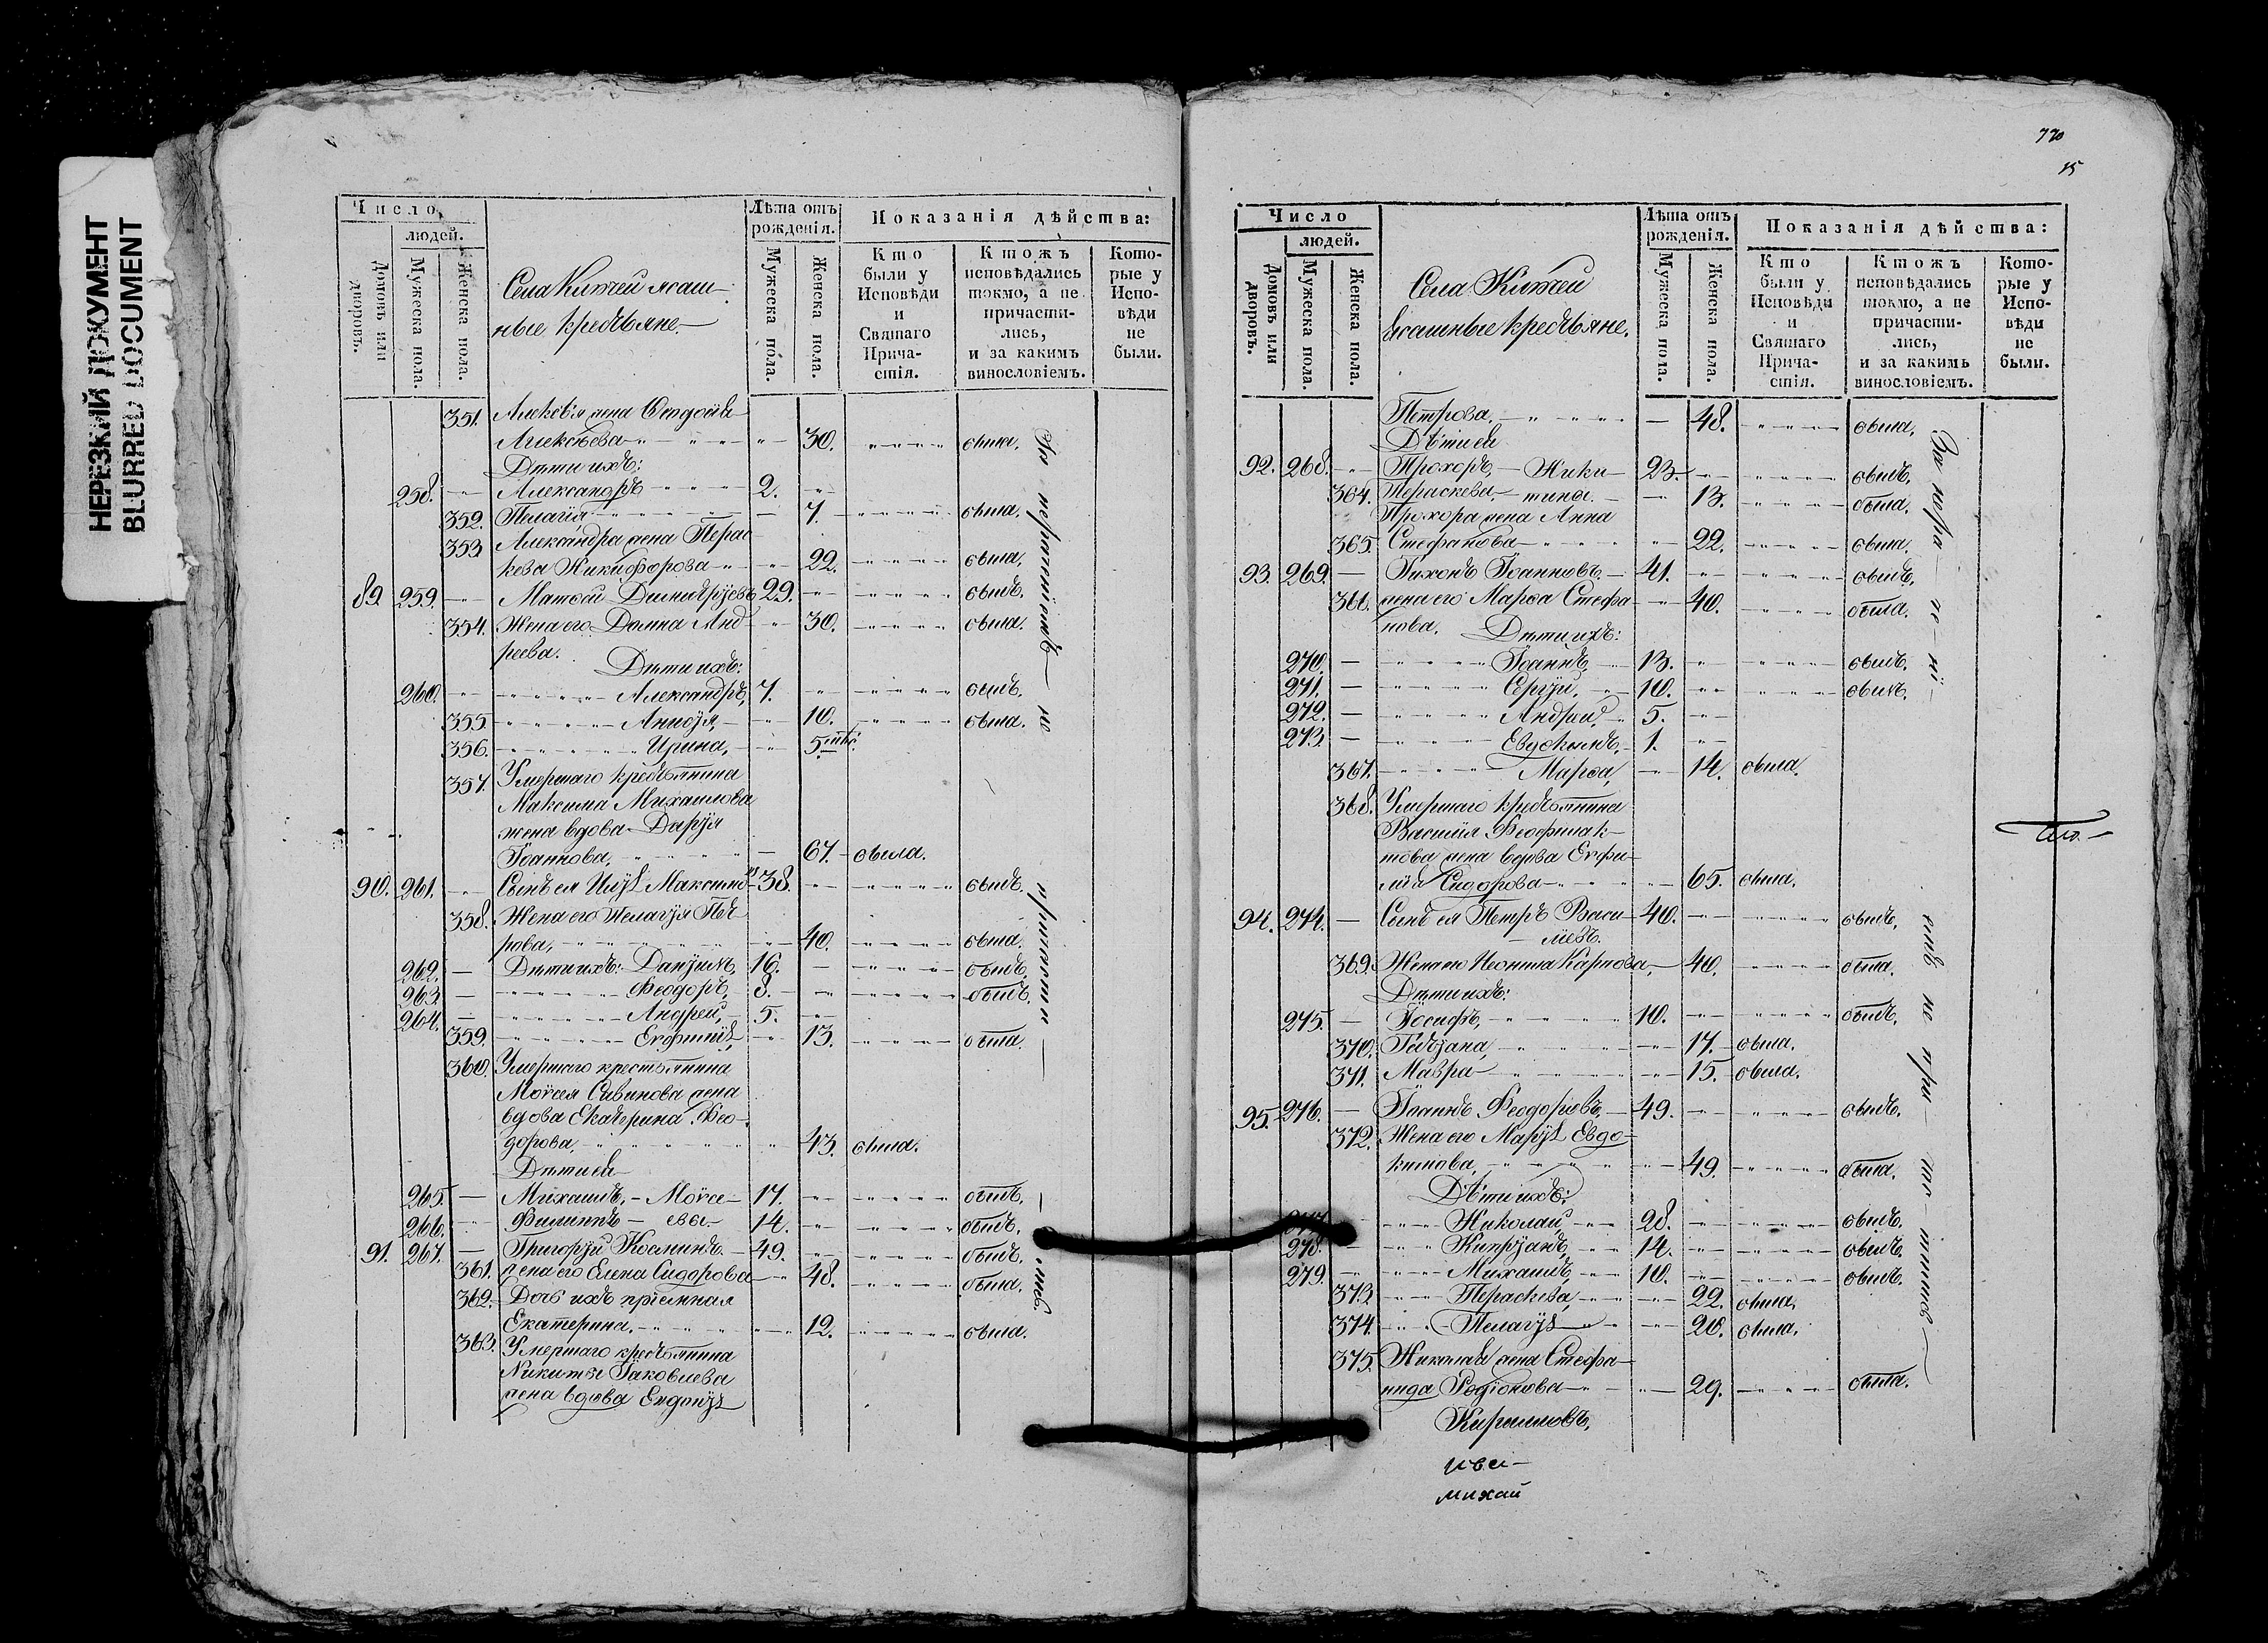 НЕРЕЗКИЙ ДОКУМЕНТ
BLURRED DOCUMENT
Число
людей.
Домовъ или дворовъ.
Мужеска пола.
Женска пола.
Села Китчей ясаш-
ные крестьяне
Лѣта отъ
рожденія.
Мужеска пола.
Женска пола.
Показанія дѣйства:
Кто
были у
Исповѣди
и
Святаго
Прича-
стія.
Ктожъ
исповѣдались
токмо, а не
причасти-
лись,
и за какимъ
винословіемъ.
Кото-
рые у
Испо-
вѣди
не
были.
351. Алексѣя жена Ѳеодосія
Алексѣева 30. была.
Дѣти ихъ:
258. Александръ 2.
352. Пелагія 7. была.
353 Александра жена Перас-
кева Никифорова 22. была.
89. 259. Матѳей Димитріевъ 29. былъ.
354. Жена его Домна Анд- 30. была.
реева.
Дѣти ихъ:
260. Александръ, 7. былъ.
355. Анисія, 10. была.
356. Ирина, 5
357. Умершаго крестьянина
Максима Михайлова
жена вдова Дарія
Іоаннова, 67. была.
90. 261. Сынъ ея Илія Максимовъ 38. былъ.
358. Жена его Пелагія Пет-
рова, 40. была.
262. Дѣти ихъ: Даніилъ, 16. былъ.
263. Ѳеодоръ, 8. былъ.
264. Андрей, 5.
359. Евфимія, 13. была.
360. Умершаго крестьянина
Моѵсея Савинова жена
вдова Екатерина Ѳео-
дорова, 43. была.
Дѣти ея
265. Михаилъ, Моѵсе- 17. былъ.
266. Филиппъ евы 14. былъ.
91. 267. Григорій Косминъ 49. былъ.
361. жена его Елена Сидорова 48. была.
362. Дочь ихъ пріемная
Екатерина, 12. была.
363. Умершаго крестьянина
Никиты Іаковлева
жена вдова Евдокія
770
15
Число
людей.
Домовъ или дворовъ.
Мужеска пола.
Женска пола.
Села Китчей
Ясашные крестьяне.
Лѣта отъ
рожденія.
Мужеска пола.
Женска пола.
Показанія дѣйства:
Кто
были у
Исповѣди
и
Святаго
Прича-
стія.
Ктожъ
исповѣдались
токмо, а не
причасти-
лись,
и за какимъ
винословіемъ.
Кото-
рые у
Испо-
вѣди
не
были.
Петрова, 48. была.
Дѣти ея
92. 268. Прохоръ, Ники- 23. былъ.
364. Пераскева тины 13. была.
Прохора жена Анна
365. Стефанова 22. была.
93. 269. Тихонъ Іоанновъ 41. былъ.
366. жена его Марѳа Стефа- 40. была.
нова. Дѣти ихъ:
270. Іоаннъ 13. былъ.
271. Сергій, 10. былъ.
272. Андрей, 5.
273. Евдокимъ, 1.
367. Марѳа, 14. была.
368. Умершаго крестьянина
Василія Ѳеофилак-
това жена вдова Евфи-
мія Сидорова 65. была.
94. 274. Сынъ ея Петръ Васи- 40. былъ.
льевъ.
369. Жена его Неонила Карпова, 40. была.
Дѣти ихъ:
275. Іосифъ, 10. былъ.
370. Татіана, 17. была.
371. Мавра 15. была.
95. 276. Іоаннъ Ѳеодоровъ, 49. былъ.
372. Жена его Марія Евдо-
кимова, 49. была.
Дѣти ихъ:
277. Николай 28. былъ.
278. Кипріанъ, 14. былъ.
279. Михаилъ, 10. былъ.
373. Пераскева, 22. была.
374. Пелагія 20. была.
375. Николая жена Стефа-
нида Родіонова 29. была.
Кирилловъ,